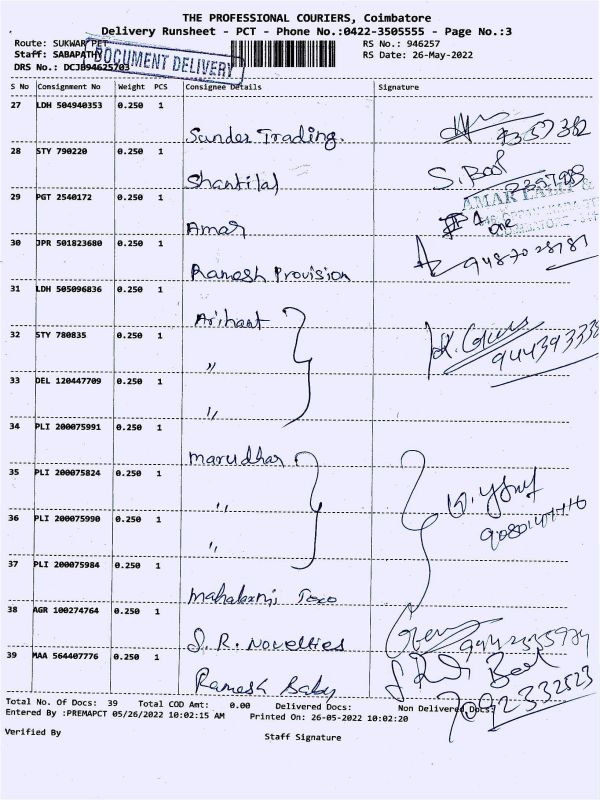 THE PROFESSIONAL COURIERS, Coimbatore
Delivery Runsheet - PCT - Phone No.:0422-3505555 - Page No.:3
Route: SUKWAR PET RS No.: 946257
Staff: SABAPATHY RS Date: 26-May-2022
DRS No.: DCJ894625703
DOCUMENT DELIVERY
S No Consignment No Weight PCS Consignee Details Signature
27 LDH 504940353 0.250 1
Sunder Trading.
28 STY 790220 0.250 1
Shantilal
29 PGT 2540172 0.250 1
Amar
30 JPR 501823680 0.250 1
Ramesh Provision
31 LDH 505096836 0.250 1
Arihant
32 STY 780835 0.250 1
"
33 DEL 120447709 0.250 1
"
34 PLI 200075991 0.250 1
Marudhar
35 PLI 200075824 0.250 1
"
36 PLI 200075990 0.250 1
"
37 PLI 200075984 0.250 1
Mahalaxmi Toxo
38 AGR 100274764 0.250 1
S.R. Novelties
39 MAA 564407776 0.250 1
Ramesh Baby
7092332523
Total No. Of Docs: 39 Total COD Amt: 0.00 Delivered Docs: Non Delivered Docs:
Entered By :PREMAPCT 05/26/2022 10:02:15 AM Printed On: 26-05-2022 10:02:20
Verified By Staff Signature